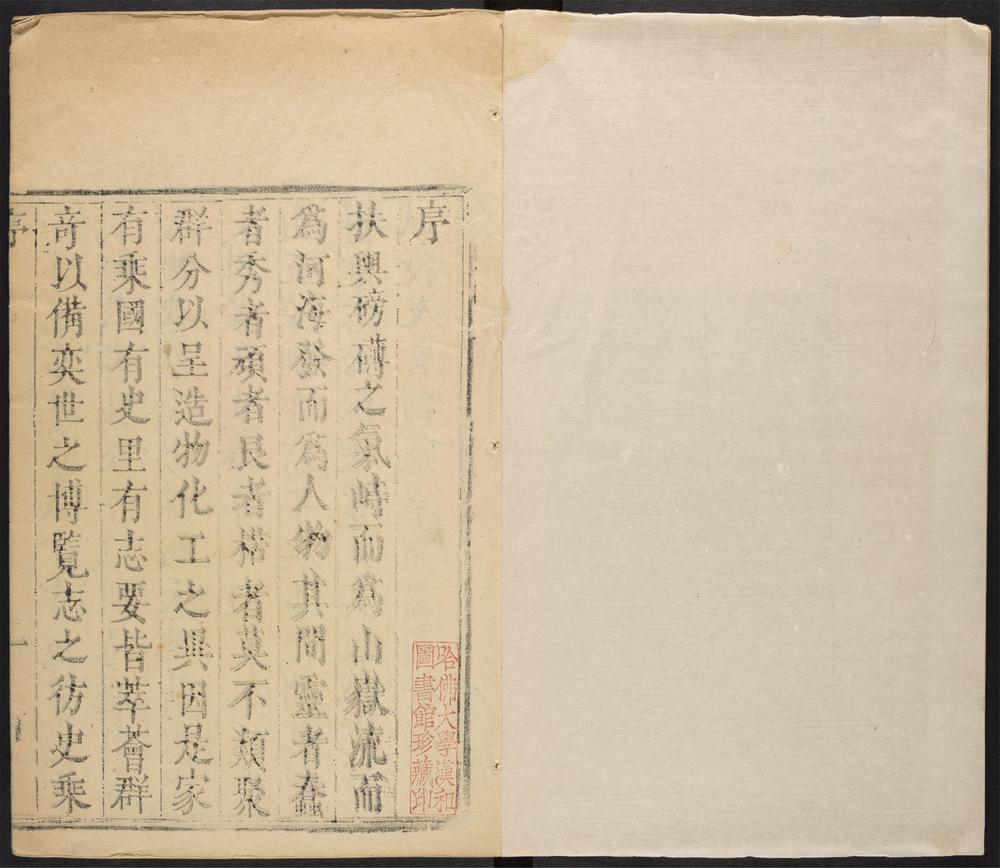 序
扶輿磅礴之氣峙而為山嶽流而
為河海發而為人物其間靈者蠢
者秀者頑者良者楛者莫不類聚
群分以呈造物化工之異因是家
有乘國有史里有志要皆萃薈群
奇以備奕世之博覽志之彷史乘
序
一
哈佛大學漢和
圖書館珍藏印